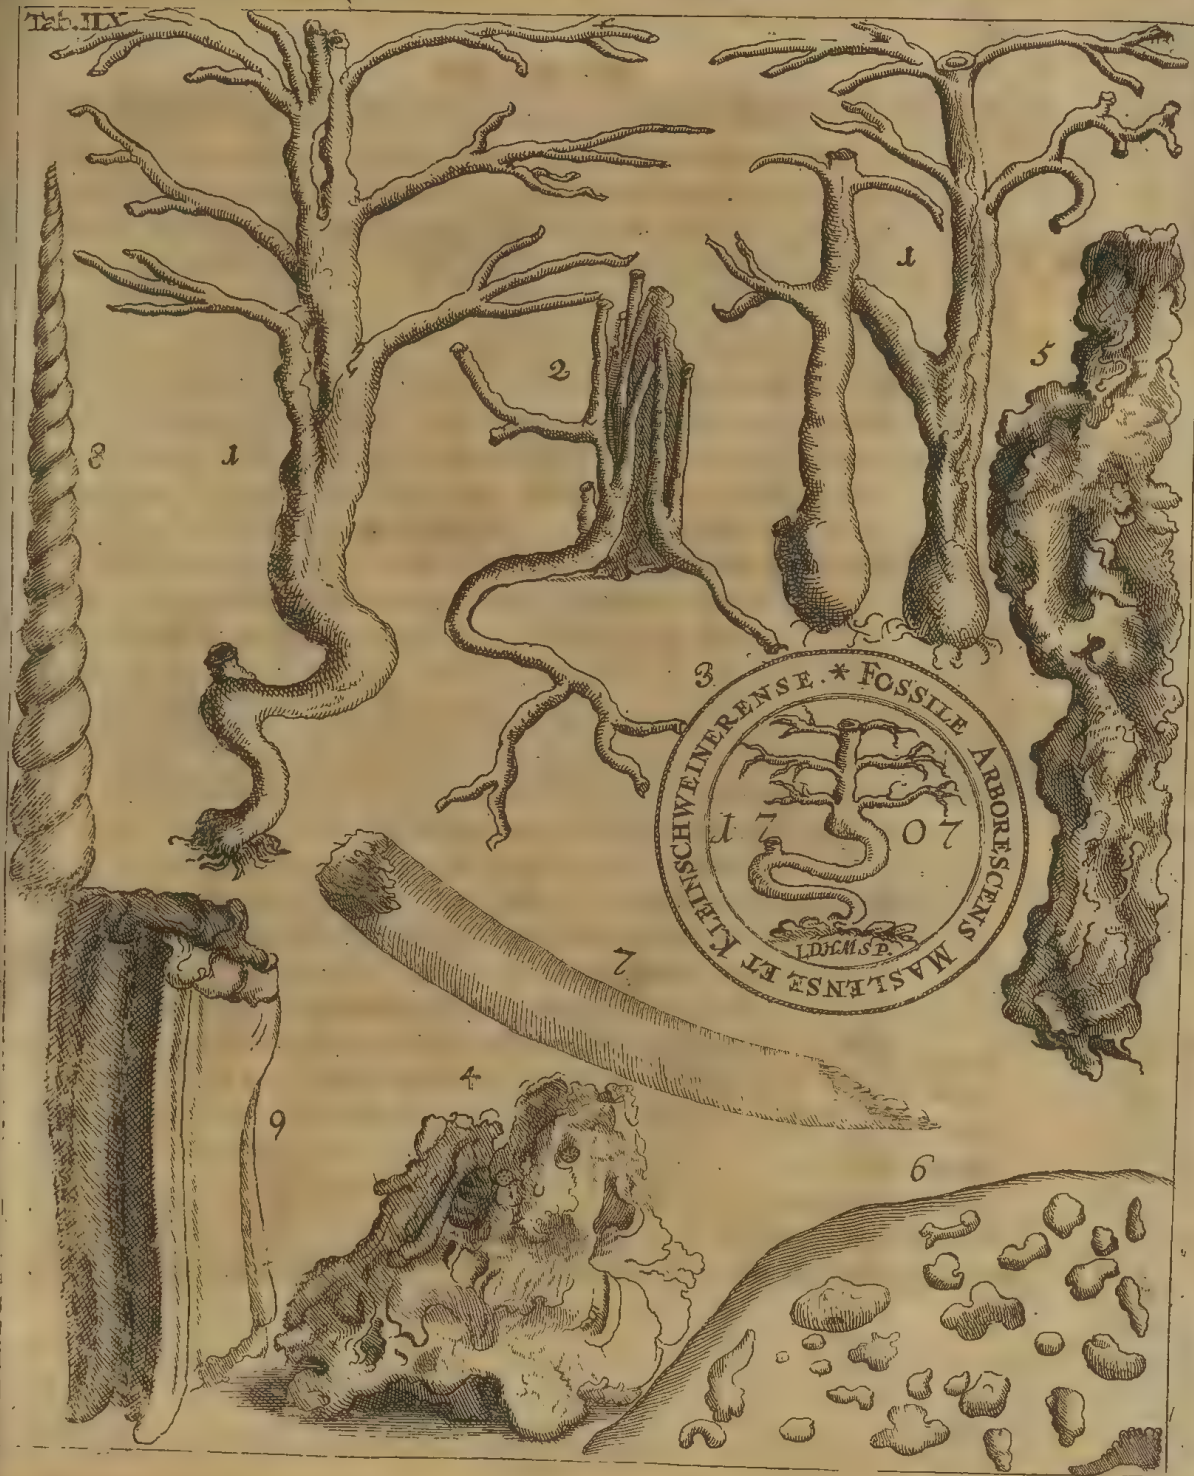 Tab. IIX
1
1
2
5
8
3
* FOSSILE ARBORESCENS MASLENSE ET KLEINSCHWEINERENSE.
17 07
I.D.H.M.S.P.
7
4
9
6